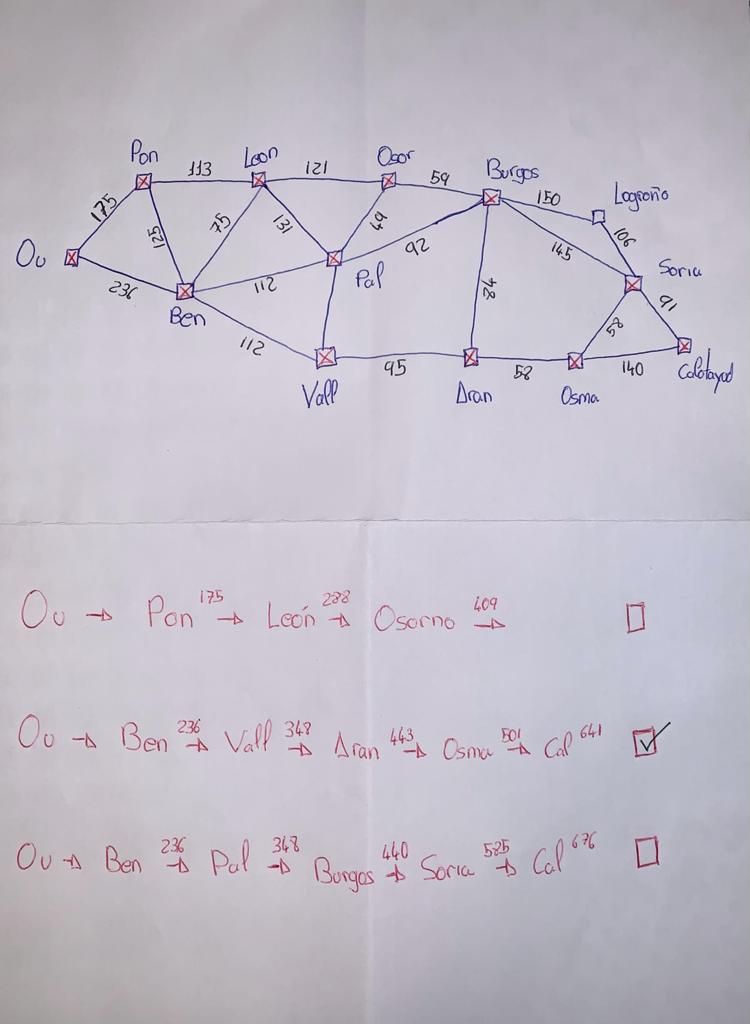 Pon 113 Leon 121 Osor 59 Burgos 150 Logroño
175 125 75 131 49 92 145 106
Ou 236 Ben 112 Pal 78 Soria
112 58 91
Vall 95 Aran 58 Osma 140 Calatayud
Ou → Pon 175 → León 288 → Osorno 409 →
Ou → Ben 236 → Vall 348 → Aran 443 → Osma 501 → Cal 641
Ou → Ben 236 → Pal 348 → Burgos 440 → Soria 585 → Cal 676